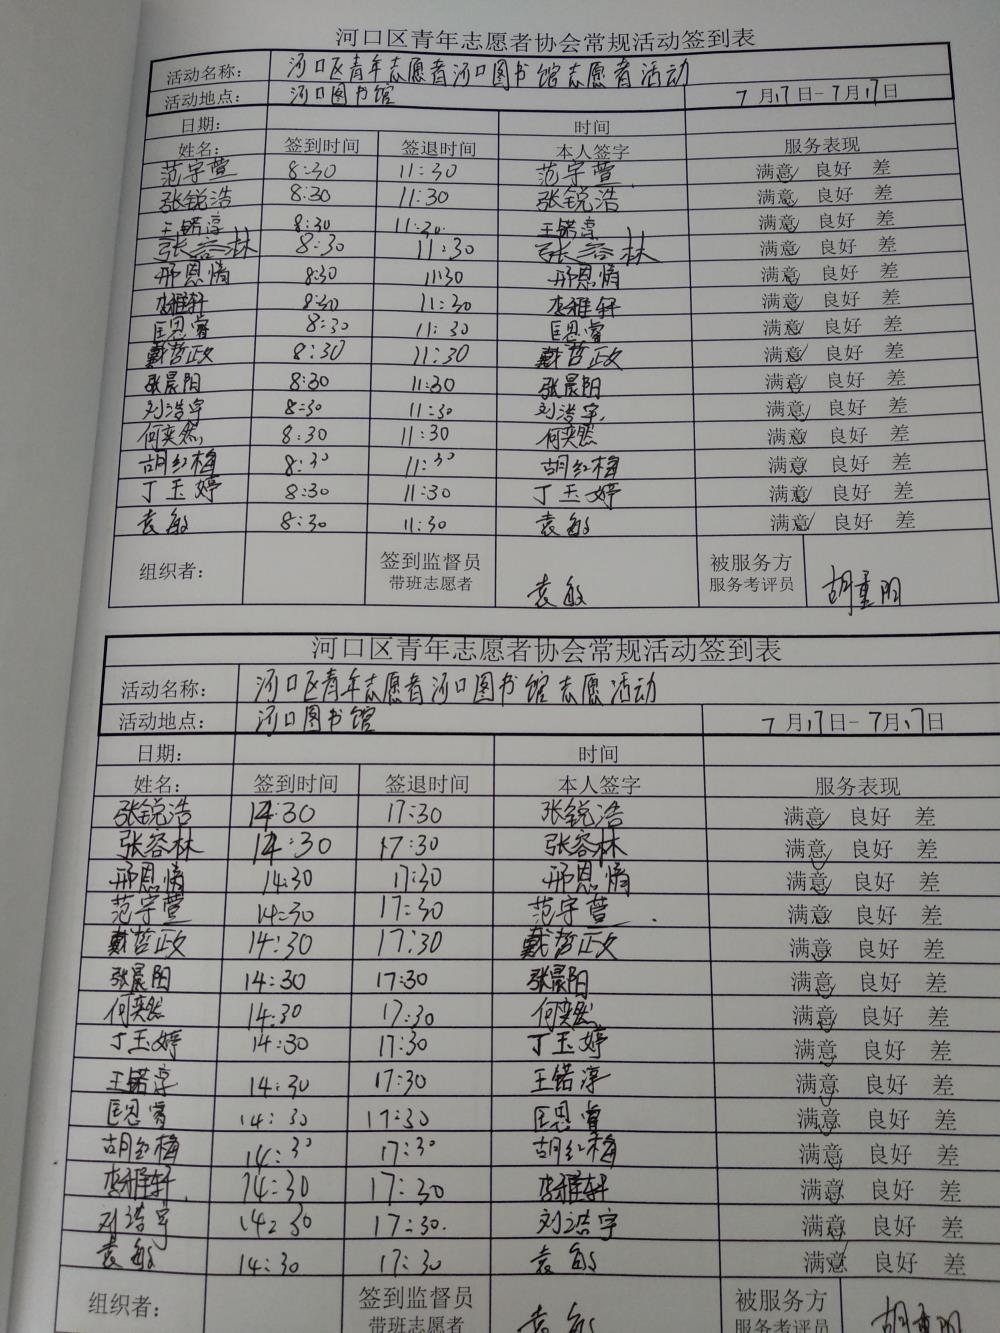 河口区青年志愿者协会常规活动签到表
活动名称: 河口区青年志愿者河口图书馆志愿者活动
活动地点: 河口图书馆 7月17日-7月17日
日期: 时间
姓名: 签到时间 签退时间 本人签字 服务表现
范宇萱 8:30 11:30 范宇萱 满意 良好 差
张锐浩 8:30 11:30 张锐浩 满意 良好 差
王锘淳 8:30 11:30 王锘淳 满意 良好 差
张容林 8:30 11:30 张容林 满意 良好 差
邢恩情 8:30 11:30 邢恩情 满意 良好 差
李雅轩 8:30 11:30 李雅轩 满意 良好 差
匡恩睿 8:30 11:30 匡恩睿 满意 良好 差
戴哲政 8:30 11:30 戴哲政 满意 良好 差
张晨阳 8:30 11:30 张晨阳 满意 良好 差
刘浩宇 8:30 11:30 刘浩宇 满意 良好 差
何奕然 8:30 11:30 何奕然 满意 良好 差
胡红梅 8:30 11:30 胡红梅 满意 良好 差
丁玉婷 8:30 11:30 丁玉婷 满意 良好 差
袁敏 8:30 11:30 袁敏 满意 良好 差
组织者: 签到监督员 带班志愿者 袁敏 被服务方 服务考评员 胡重阳
河口区青年志愿者协会常规活动签到表
活动名称: 河口区青年志愿者河口图书馆志愿活动
活动地点: 河口图书馆 7月17日-7月17日
日期: 时间
姓名: 签到时间 签退时间 本人签字 服务表现
张锐浩 14:30 17:30 张锐浩 满意 良好 差
张容林 14:30 17:30 张容林 满意 良好 差
邢恩情 14:30 17:30 邢恩情 满意 良好 差
范宇萱 14:30 17:30 范宇萱 满意 良好 差
戴哲政 14:30 17:30 戴哲政 满意 良好 差
张晨阳 14:30 17:30 张晨阳 满意 良好 差
何奕然 14:30 17:30 何奕然 满意 良好 差
丁玉婷 14:30 17:30 丁玉婷 满意 良好 差
王锘淳 14:30 17:30 王锘淳 满意 良好 差
匡恩睿 14:30 17:30 匡恩睿 满意 良好 差
胡红梅 14:30 17:30 胡红梅 满意 良好 差
李雅轩 14:30 17:30 李雅轩 满意 良好 差
刘浩宇 14:30 17:30 刘浩宇 满意 良好 差
袁敏 14:30 17:30 袁敏 满意 良好 差
组织者: 签到监督员 带班志愿者 袁敏 被服务方 服务考评员 胡重阳